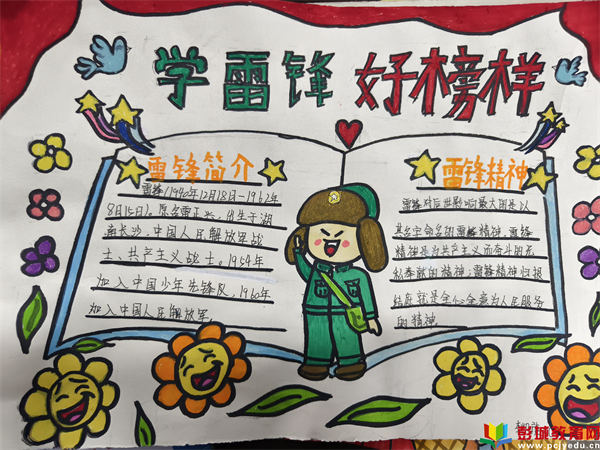 学雷锋 好榜样
雷锋简介
雷锋(1940年12月18日—1962年
8月15日)。原名雷正兴,出生于湖
南长沙,中国人民解放军战
士、共产主义战士。1954年
加入中国少年先锋队,1960年
加入中国人民解放军。
雷锋精神
雷锋对后世影响最大的是以
其名字命名的雷锋精神,雷锋
精神是为共产主义而奋斗的无
私奉献的精神;雷锋精神归根
结底就是全心全意为人民服务
的精神。
彭城教育网
www.pcjyedu.cn